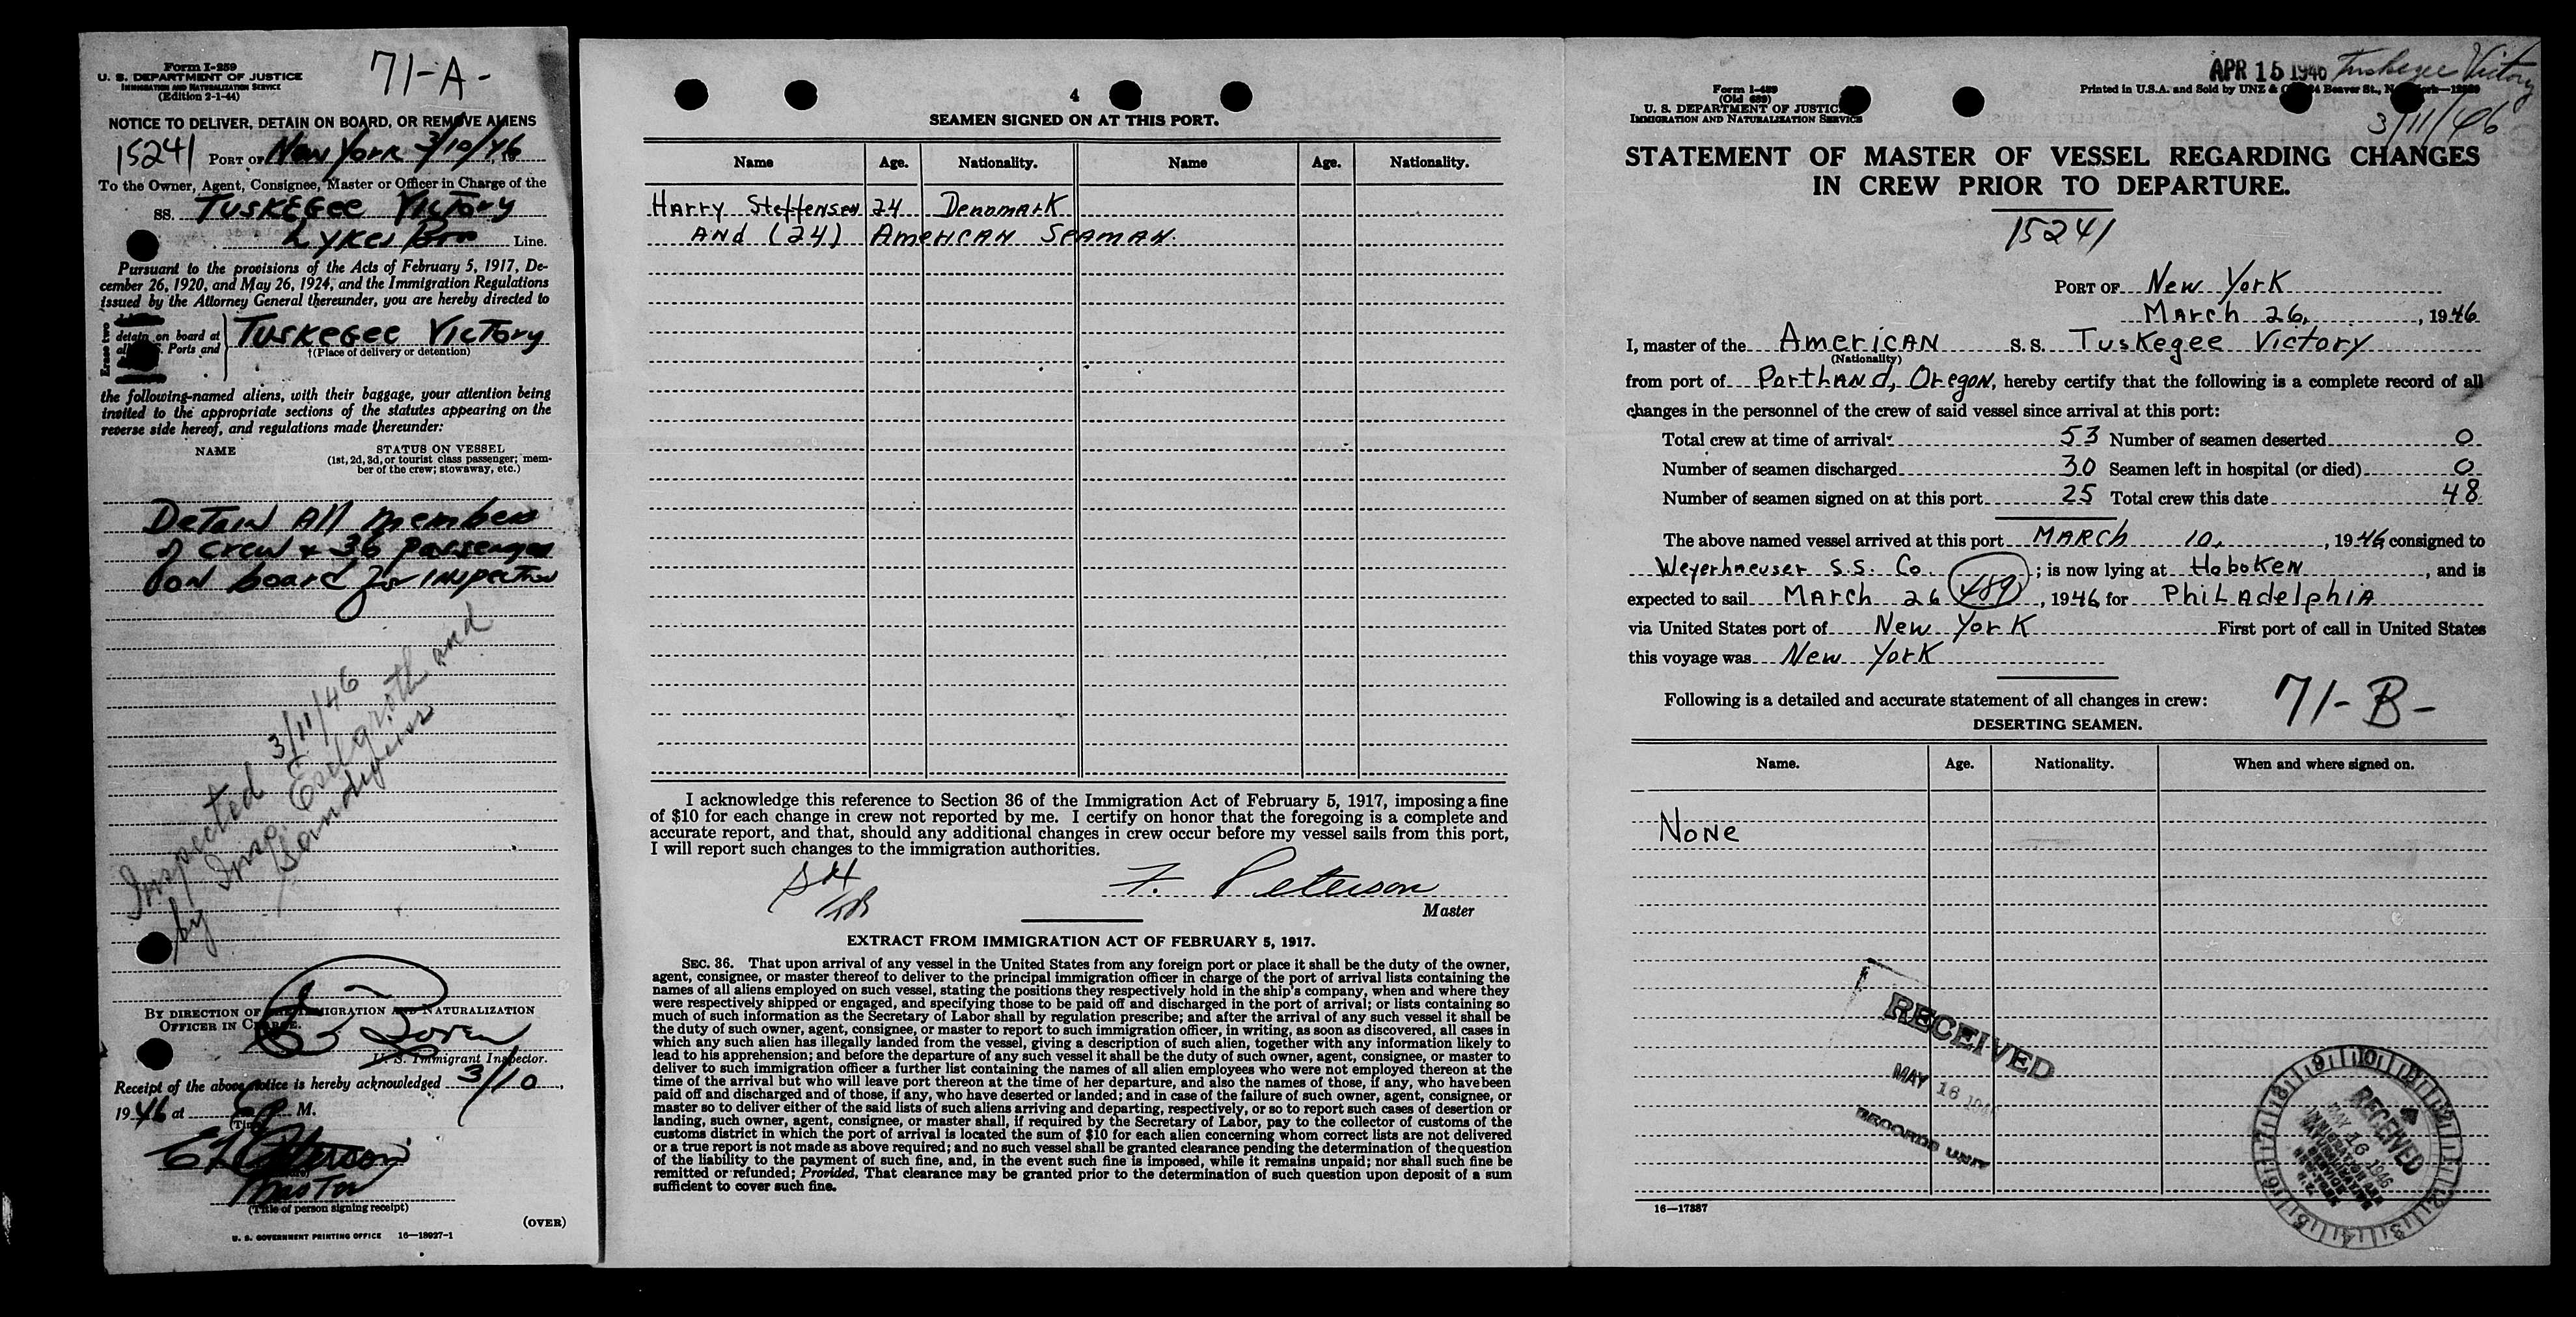 71-A-
Form I-259
U. S. DEPARTMENT OF JUSTICE
IMMIGRATION AND NATURALIZATION SERVICE
(Edition 2-1-44)
NOTICE TO DELIVER, DETAIN ON BOARD, OR REMOVE ALIENS
15241 PORT OF New York 3/10/46, 19
To the Owner, Agent, Consignee, Master or Officer in Charge of the
SS. TUSKEGEE VICTORY
Lykes Bros Line.
Pursuant to the provisions of the Acts of February 5, 1917, De-
cember 26, 1920, and May 26, 1924, and the Immigration Regulations
issued by the Attorney General thereunder, you are hereby directed to
Erase two
detain on board at TUSKEGEE VICTORY
all U.S. Ports and †(Place of delivery or detention)
the following-named aliens, with their baggage, your attention being
invited to the appropriate sections of the statutes appearing on the
reverse side hereof, and regulations made thereunder:
NAME STATUS ON VESSEL
(1st, 2d, 3d, or tourist class passenger; mem-
ber of the crew; stowaway, etc.)
DETAIN All members
of crew & 36 passengers
on board for inspection
Inspected 3/11/46
by Insp. and
BY DIRECTION OF THE IMMIGRATION AND NATURALIZATION
OFFICER IN CHARGE.
U. S. Immigrant Inspector.
Receipt of the above notice is hereby acknowledged 3/10,
1946 at P M.
(Time)
Peterson
master
(Title of person signing receipt)
(OVER)
U. S. GOVERNMENT PRINTING OFFICE 16—18927-1
4
SEAMEN SIGNED ON AT THIS PORT.
Name Age. Nationality. Name Age. Nationality.
Harry Steffensen 24 Denomark
And (24) American Seaman.
I acknowledge this reference to Section 36 of the Immigration Act of February 5, 1917, imposing a fine
of $10 for each change in crew not reported by me. I certify on honor that the foregoing is a complete and
accurate report, and that, should any additional changes in crew occur before my vessel sails from this port,
I will report such changes to the immigration authorities.
F. Peterson
Master
EXTRACT FROM IMMIGRATION ACT OF FEBRUARY 5, 1917.
SEC. 36. That upon arrival of any vessel in the United States from any foreign port or place it shall be the duty of the owner,
agent, consignee, or master thereof to deliver to the principal immigration officer in charge of the port of arrival lists containing the
names of all aliens employed on such vessel, stating the positions they respectively hold in the ship's company, when and where they
were respectively shipped or engaged, and specifying those to be paid off and discharged in the port of arrival; or lists containing so
much of such information as the Secretary of Labor shall by regulation prescribe; and after the arrival of any such vessel it shall be
the duty of such owner, agent, consignee, or master to report to such immigration officer, in writing, as soon as discovered, all cases in
which any such alien has illegally landed from the vessel, giving a description of such alien, together with any information likely to
lead to his apprehension; and before the departure of any such vessel it shall be the duty of such owner, agent, consignee, or master to
deliver to such immigration officer a further list containing the names of all alien employees who were not employed thereon at the
time of the arrival but who will leave port thereon at the time of her departure, and also the names of those, if any, who have been
paid off and discharged and of those, if any, who have deserted or landed; and in case of the failure of such owner, agent, consignee, or
master so to deliver either of the said lists of such aliens arriving and departing, respectively, or so to report such cases of desertion or
landing, such owner, agent, consignee, or master shall, if required by the Secretary of Labor, pay to the collector of customs of the
customs district in which the port of arrival is located the sum of $10 for each alien concerning whom correct lists are not delivered
or a true report is not made as above required; and no such vessel shall be granted clearance pending the determination of the question
of the liability to the payment of such fine, and, in the event such fine is imposed, while it remains unpaid; nor shall such fine be
remitted or refunded; Provided, That clearance may be granted prior to the determination of such question upon deposit of a sum
sufficient to cover such fine.
APR 15 1946 Tuskegee Victory
3/11/46
Form I-489
(Old 689)
U. S. DEPARTMENT OF JUSTICE
IMMIGRATION AND NATURALIZATION SERVICE
Printed in U.S.A. and Sold by UNZ & Beaver St., New York
STATEMENT OF MASTER OF VESSEL REGARDING CHANGES
IN CREW PRIOR TO DEPARTURE.
15241
PORT OF New York
March 26, , 1946
I, master of the American S. S. Tuskegee Victory
(Nationality)
from port of Portland, Oregon, hereby certify that the following is a complete record of all
changes in the personnel of the crew of said vessel since arrival at this port:
Total crew at time of arrival 53 Number of seamen deserted 0
Number of seamen discharged 30 Seamen left in hospital (or died) 0
Number of seamen signed on at this port 25 Total crew this date 48
The above named vessel arrived at this port MARCH 10, , 1946 consigned to
Weyerhaeuser S.S. Co. ; is now lying at Hoboken , and is
expected to sail March 26 489 , 1946 for Philadelphia
via United States port of New York First port of call in United States
this voyage was New York
Following is a detailed and accurate statement of all changes in crew: 71-B-
DESERTING SEAMEN.
Name. Age. Nationality. When and where signed on.
None
RECEIVED
MAY 16 1946
RECORDS UNIT
RECEIVED
MAY 16 1946
IMMIGRATION AND
NATURALIZATION
SERVICE
NEW YORK
N.Y.
16—17387